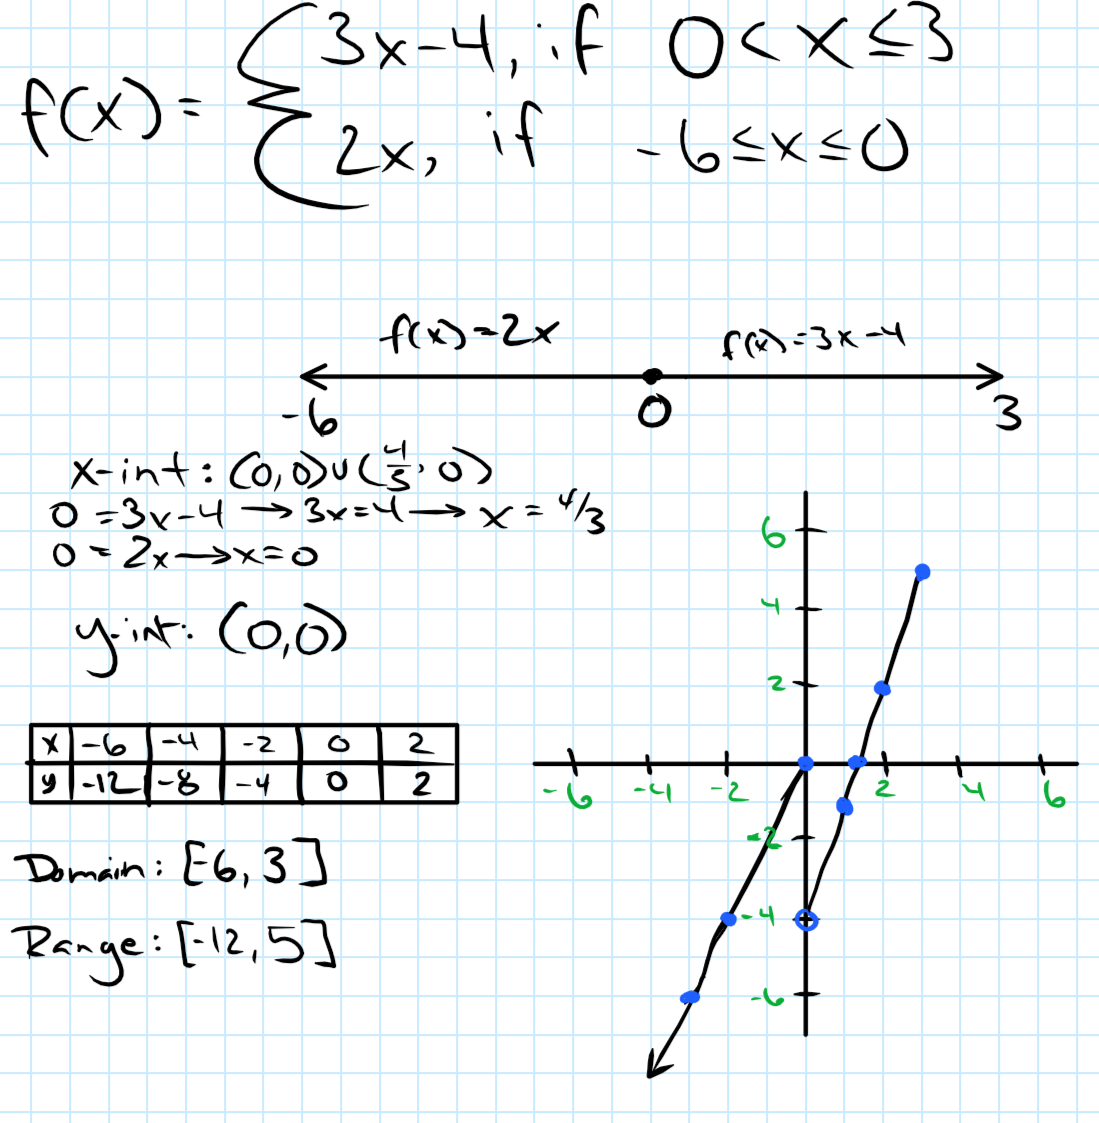 f(x) = { 3x-4, if 0 < x ≤ 3
2x, if -6 ≤ x ≤ 0
f(x)=2x f(x)=3x-4
-6 0 3
x-int: (0,0)∪(4/3, 0)
0 = 3x-4 → 3x=4 → x = 4/3
0 = 2x → x=0
y-int: (0,0)
x -6 -4 -2 0 2
y -12 -8 -4 0 2
Domain: [-6, 3]
Range: [-12, 5]
6
4
2
-6 -4 -2 2 4 6
-2
-4
-6